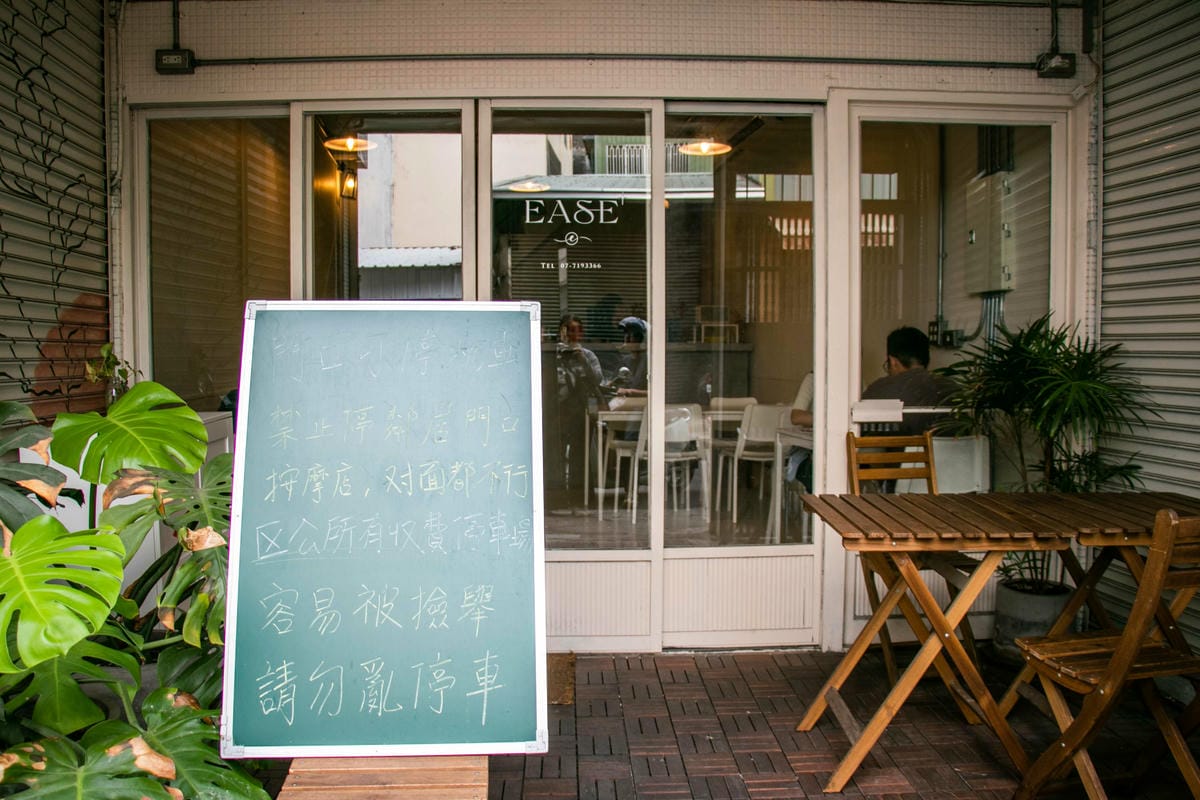 EASE'
e
TEL 07-7193366
門口 停 車
禁止停鄰居門口
按摩店,对面都不行
区公所有收費停車場
容易被撿舉
請勿亂停車